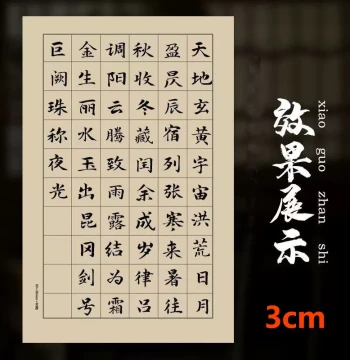 天地玄黄宇宙洪荒日月
盈昃辰宿列张寒来暑往
秋收冬藏闰余成岁律吕
调阳云腾致雨露结为霜
金生丽水玉出昆冈剑号
巨阙珠称夜光
效果展示
xiao guo zhan shi
3cm